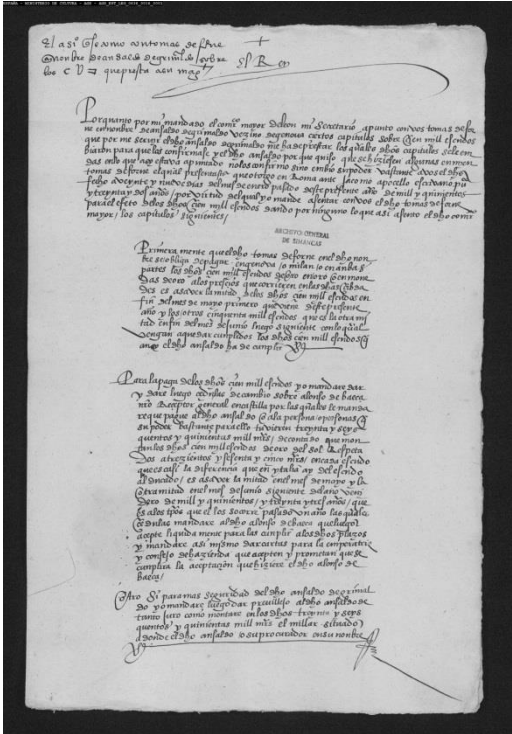 El asi que se
nombre de ansaldo de grimaldo sobre
los C U que presta a su magt
El Rey
Por quanto por mi mandado el comendador mayor de leon mi secretario apunto con vos tomas de forne
en nombre de ansaldo de grimaldo vezino de genova ciertos capitulos sobre cien mill escudos
que por me servir el dho ansaldo de grimaldo me ha de prestar los quales dhos capitulos se le em
biaron para que los confirmase y el dho ansaldo por que quiso que se hiziesen algunas enmien
das en lo que aqui estava apuntado no los confirmo sino embio su poder bastante a vos el dho
tomas de forne el qual presentastes que otorgo en Roma ante Jacome apocello escrivano pu
fecho a veynte y nueve dias del mes de enero pasado deste presente año de mill y quinientos
y treynta y dos años / por virtud del qual yo mande asentar con vos el dho tomas de forne
para el efeto de los dhos cien mill escudos dando por ninguno lo que asi asento el dho comr
mayor / los capitulos siguientes /
ARCHIVO GENERAL
DE SIMANCAS
Primera mente que el dho tomas de forne en el dho non
bre se obliga de pagar en genova / o milan / o en anbas
partes los dhos cien mill escudos de oro en oro / o en mone
das de oro a los preçios que corrieren en las dhas çibda
des es a saver la mitad de los dhos cien mill escudos en
fin del mes de mayo primero que viene deste presente
año y los otros cinquenta mill escudos que es la otra mi
tad en fin del mes de junio luego siguiente con lo qual
vengan a quedar cumplidos los dhos cien mill escudos q
el dho ansaldo ha de cunplir
Para la paga de los dhos cien mill escudos yo mandare dar
y dare luego cedulas de cambio sobre alonso de baeça
nro Reçeptor general en castilla por las quales le manda
re que pague al dho ansaldo o a la persona / o personas q
su poder bastante para ello tuvieren treynta y seys
quentos y quinientas mill mrs / de contado que mon
tan los dhos cien mill escudos de oro del sol Respeto
de a trezientos y sesenta y cinco mrs / en cada escudo
que es casi la diferencia que en ytalia ay del escudo
al ducado / es a saver la mitad en el mes de mayo y la
otra mitad en el mes de junio siguiente del año veni
dero de mill y quinientos / y treynta y tres años / que
es a los que el los socorre pasado un año las quales
cedulas mandare al dho alonso de baeça que luego
acepte liquida mente para las cunplir a los dhos plazos
y mandare asi mismo dar cartas para la emperatriz
y consejo de hazienda que acepten y prometan que se
cumplira la aceptaçion que hiziere el dho alonso de
baeça /
Otro Si para mas seguridad del dho ansaldo de grimal
do yo mandare luego dar previllejo al dho ansaldo de
tanto juro como montare en los dhos treynta y seys
quentos y quinientas mill mrs el millar situado
a donde el dho ansaldo / o su procurador en su nonbre